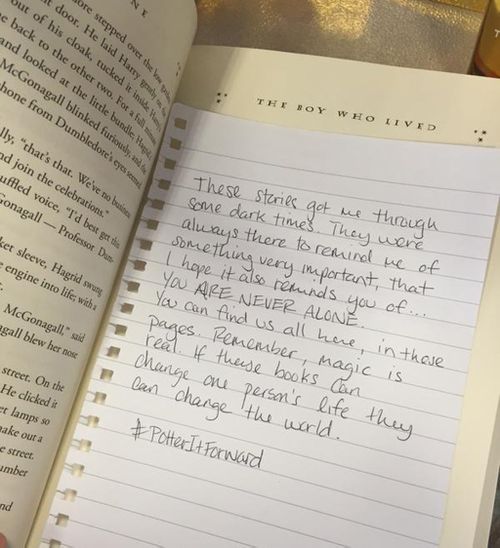 N E
ore stepped over the low
t door. He laid Harry gently on
out of his cloak, tucked it inside Harry's
e back to the other two. For a full minute
and looked at the little bundle; Hagrid's
McGonagall blinked furiously, and the
hone from Dumbledore's eyes seemed
lly, "that's that. We've no business
nd join the celebrations."
uffled voice, "I'd best get this
Gonagall — Professor Dum-
ket sleeve, Hagrid swung
e engine into life; with a
McGonagall," said
gall blew her nose
street. On the
He clicked it
et lamps so
ake out a
e street.
umber
nd
THE BOY WHO LIVED
These stories got me through
some dark times. They were
always there to remind me of
something very important, that
I hope it also reminds you of...
YOU ARE NEVER ALONE.
You can find us all here, in these
pages. Remember, magic is
real. If these books can
change one person's life they
can change the world.
#PotterItForward